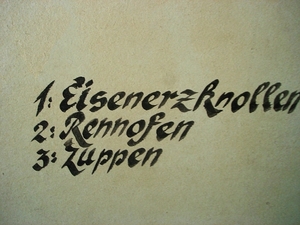 1: Eisenerzknollen
2: Rennofen
3: Luppen